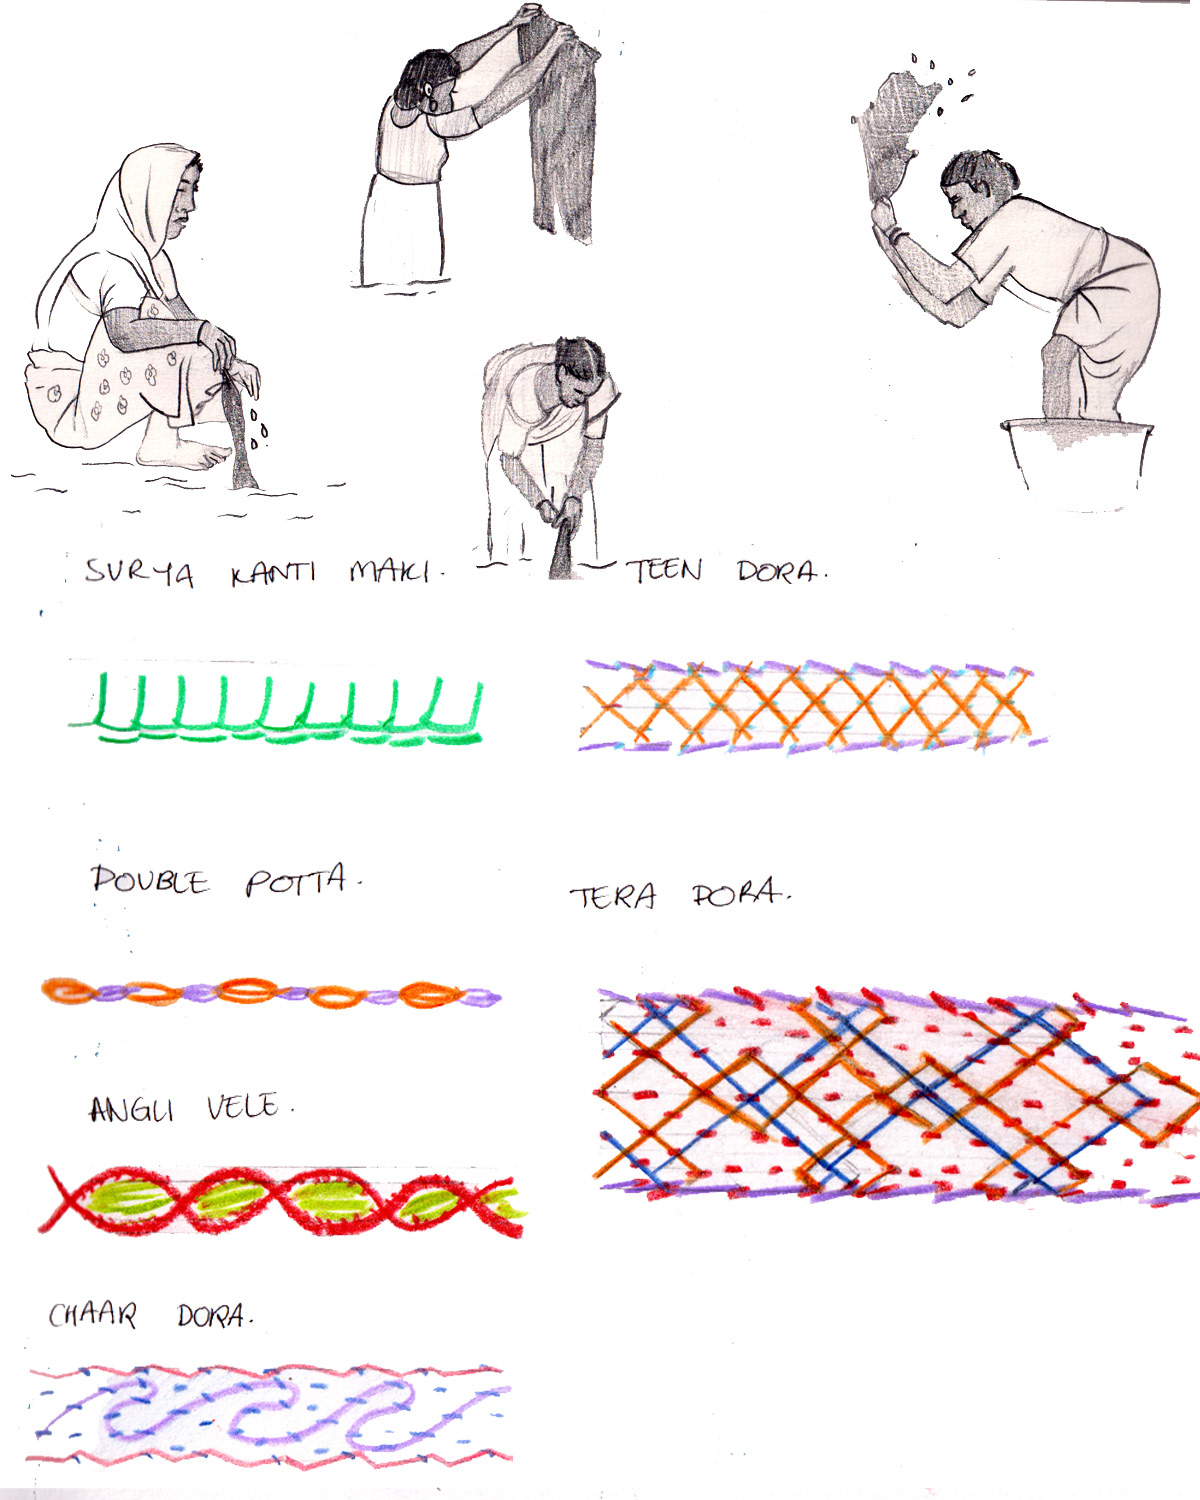 SURYA KANTI MAKI.
TEEN DORA.
DOUBLE POTTA.
TERA DORA.
ANGLI VELE.
CHAAR DORA.